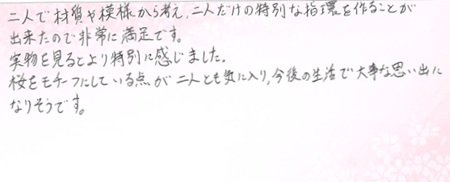 二人で材質や模様から考え、二人だけの特別な指環を作ることが
出来たので非常に満足です。
実物を見るとより特別に感じました。
桜をモチーフにしている点が二人とも気に入り、今後の生活で大事な思い出に
なりそうです。